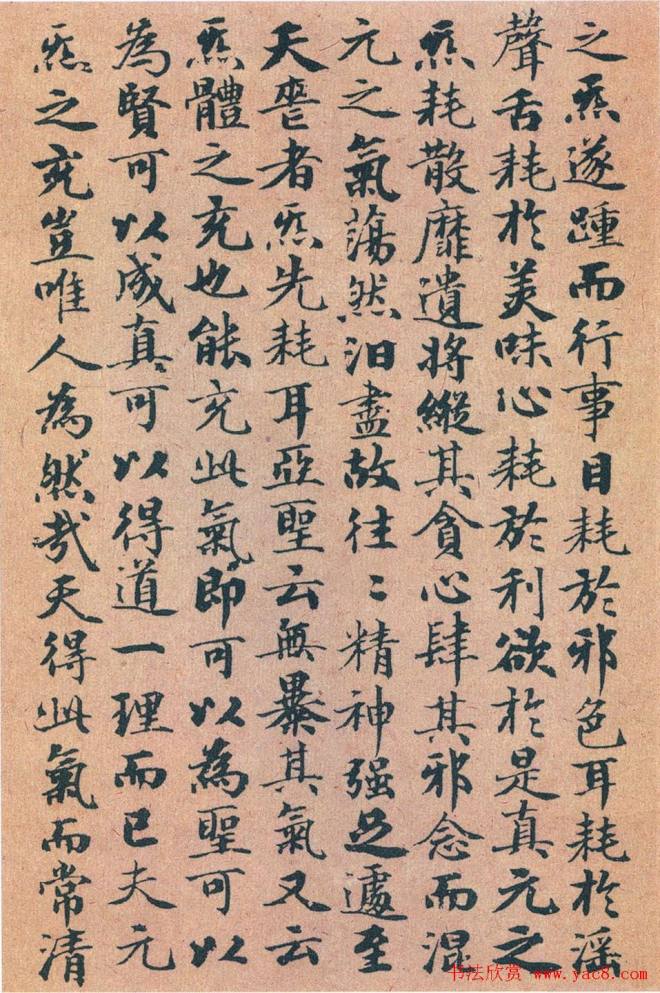 之炁遂踵而行事目耗於邪色耳耗於淫
聲舌耗於美味心耗於利欲於是真元之
炁耗散靡遺將縱其貪心肆其邪念而混
元之氣蕩然汩盡故往〻精神强足遽至
夭喪者炁先耗耳亞聖云無暴其氣又云
炁體之充也能充此氣即可以為聖可以
為賢可以成真可以得道一理而已夫元
炁之充豈唯人為然哉天得此氣而常清
书法欣赏 www.yac8.com